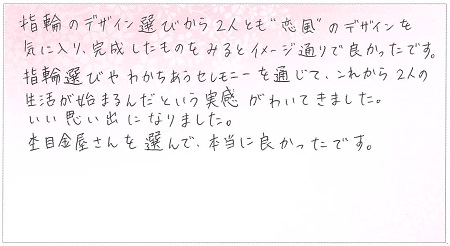 指輪のデザイン選びから2人とも"恋風"のデザインを
気に入り、完成したものをみるとイメージ通りで良かったです。
指輪選びやわかちあうセレモニーを通じて、これから2人の
生活が始まるんだという実感がわいてきました。
いい思い出になりました。
杢目金屋さんを選んで、本当に良かったです。